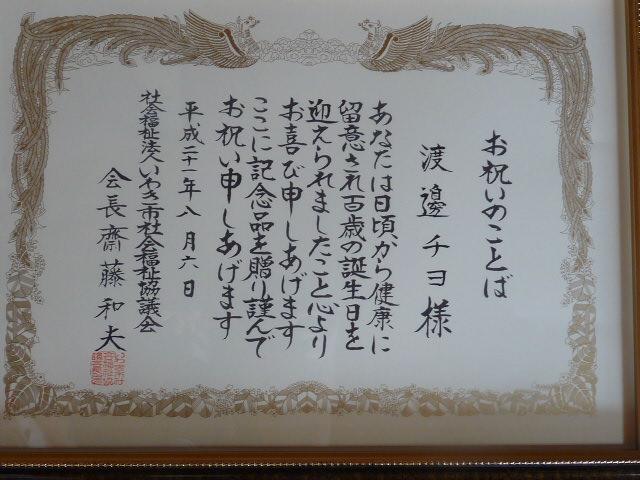 お祝いのことば
渡邊チヨ様
あなたは日頃から健康に
留意され百歳の誕生日を
迎えられましたこと心より
お喜び申しあげます
ここに記念品を贈り謹んで
お祝い申しあげます
平成二十一年八月六日
社会福祉法人いわき市社会福祉協議会
会長齋藤和夫